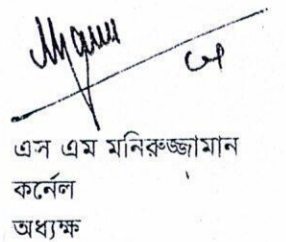 এস এম মনিরুজ্জামান
কর্নেল
অধ্যক্ষ